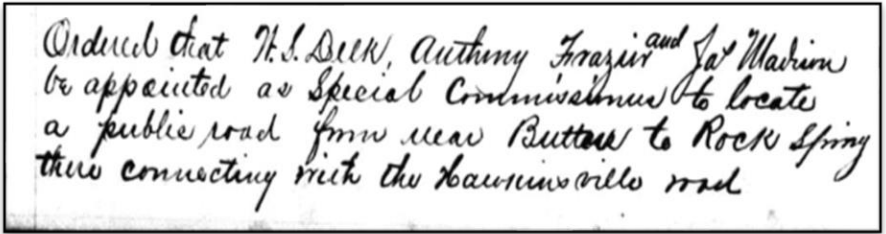 Ordered that W. S. Delk, Anthony Frazier and Jas Madison
be appointed as Special Commissioners to locate
a public road from near Buttons to Rock Spring
there connecting with the Hawkinsville road